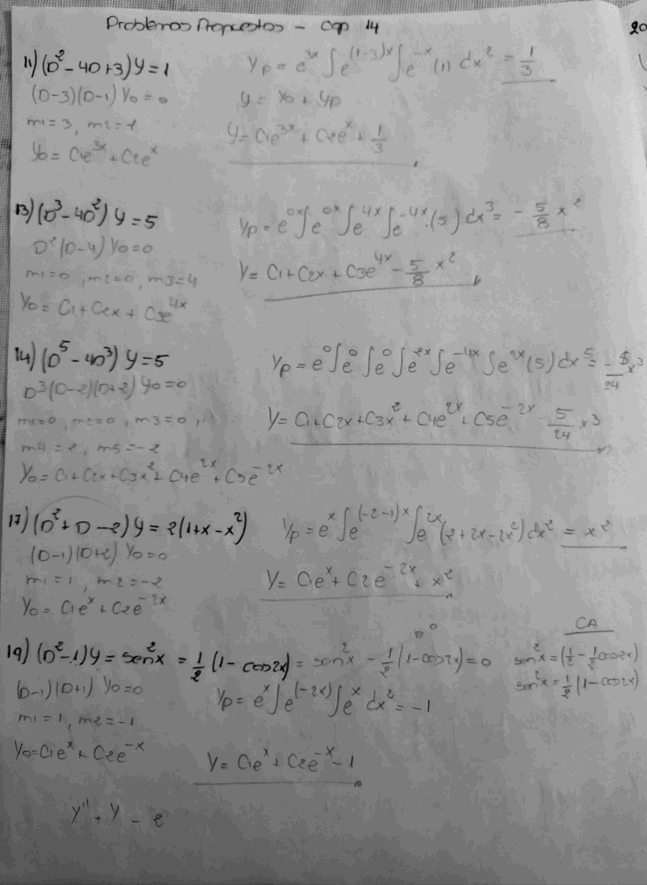 Problemas Propuestos - Cap 14
20
11) (D² - 4D + 3) y = 1
(D-3)(D-1) Yo = 0
m1 = 3, m2 = 1
Yo = C1e^3x + C2e^x
Yp = e^3x ∫e^(1-3)x ∫e^-x (1) dx² = 1/3
y = Yo + Yp
Y = C1e^3x + C2e^x + 1/3
13) (D³ - 4D²) y = 5
D²(D-4) Yo = 0
m1 = 0, m2 = 0, m3 = 4
Yo = C1 + C2x + C3e^4x
Yp = e^0x ∫e^0x ∫e^4x ∫e^-4x · (5) dx³ = - 5/8 x²
Y = C1 + C2x + C3e^4x - 5/8 x²
14) (D⁵ - 4D³) y = 5
D³(D-2)(D+2) Yo = 0
m1 = 0, m2 = 0, m3 = 0,
m4 = 2, m5 = -2
Yo = C1 + C2x + C3x² + C4e^2x + C5e^-2x
Yp = e^0 ∫e^0 ∫e^0 ∫e^2x ∫e^-4x ∫e^2x (5) dx⁵ = - 5/24 x³
Y = C1 + C2x + C3x² + C4e^2x + C5e^-2x - 5/24 x³
17) (D² + D - 2) y = 2(1+x-x²)
(D-1)(D+2) Yo = 0
m1 = 1, m2 = -2
Yo = C1e^x + C2e^-2x
Yp = e^x ∫e^(-2-1)x ∫e^2x (2+2x-2x²) dx² = x²
Y = C1e^x + C2e^-2x + x²
19) (D²-1) y = sen²x = 1/2 (1 - cos2x) = sen²x - 1/2 (1-cos2x) = 0
0
(D-1)(D+1) Yo = 0
m1 = 1, m2 = -1
Yo = C1e^x + C2e^-x
Yp = e^x ∫e^(-2x) ∫e^x dx² = -1
Y = C1e^x + C2e^-x - 1
CA
sen²x = (1/2 - 1/2 cos2x)
sen²x = 1/2 (1-cos2x)
y'' + y - e